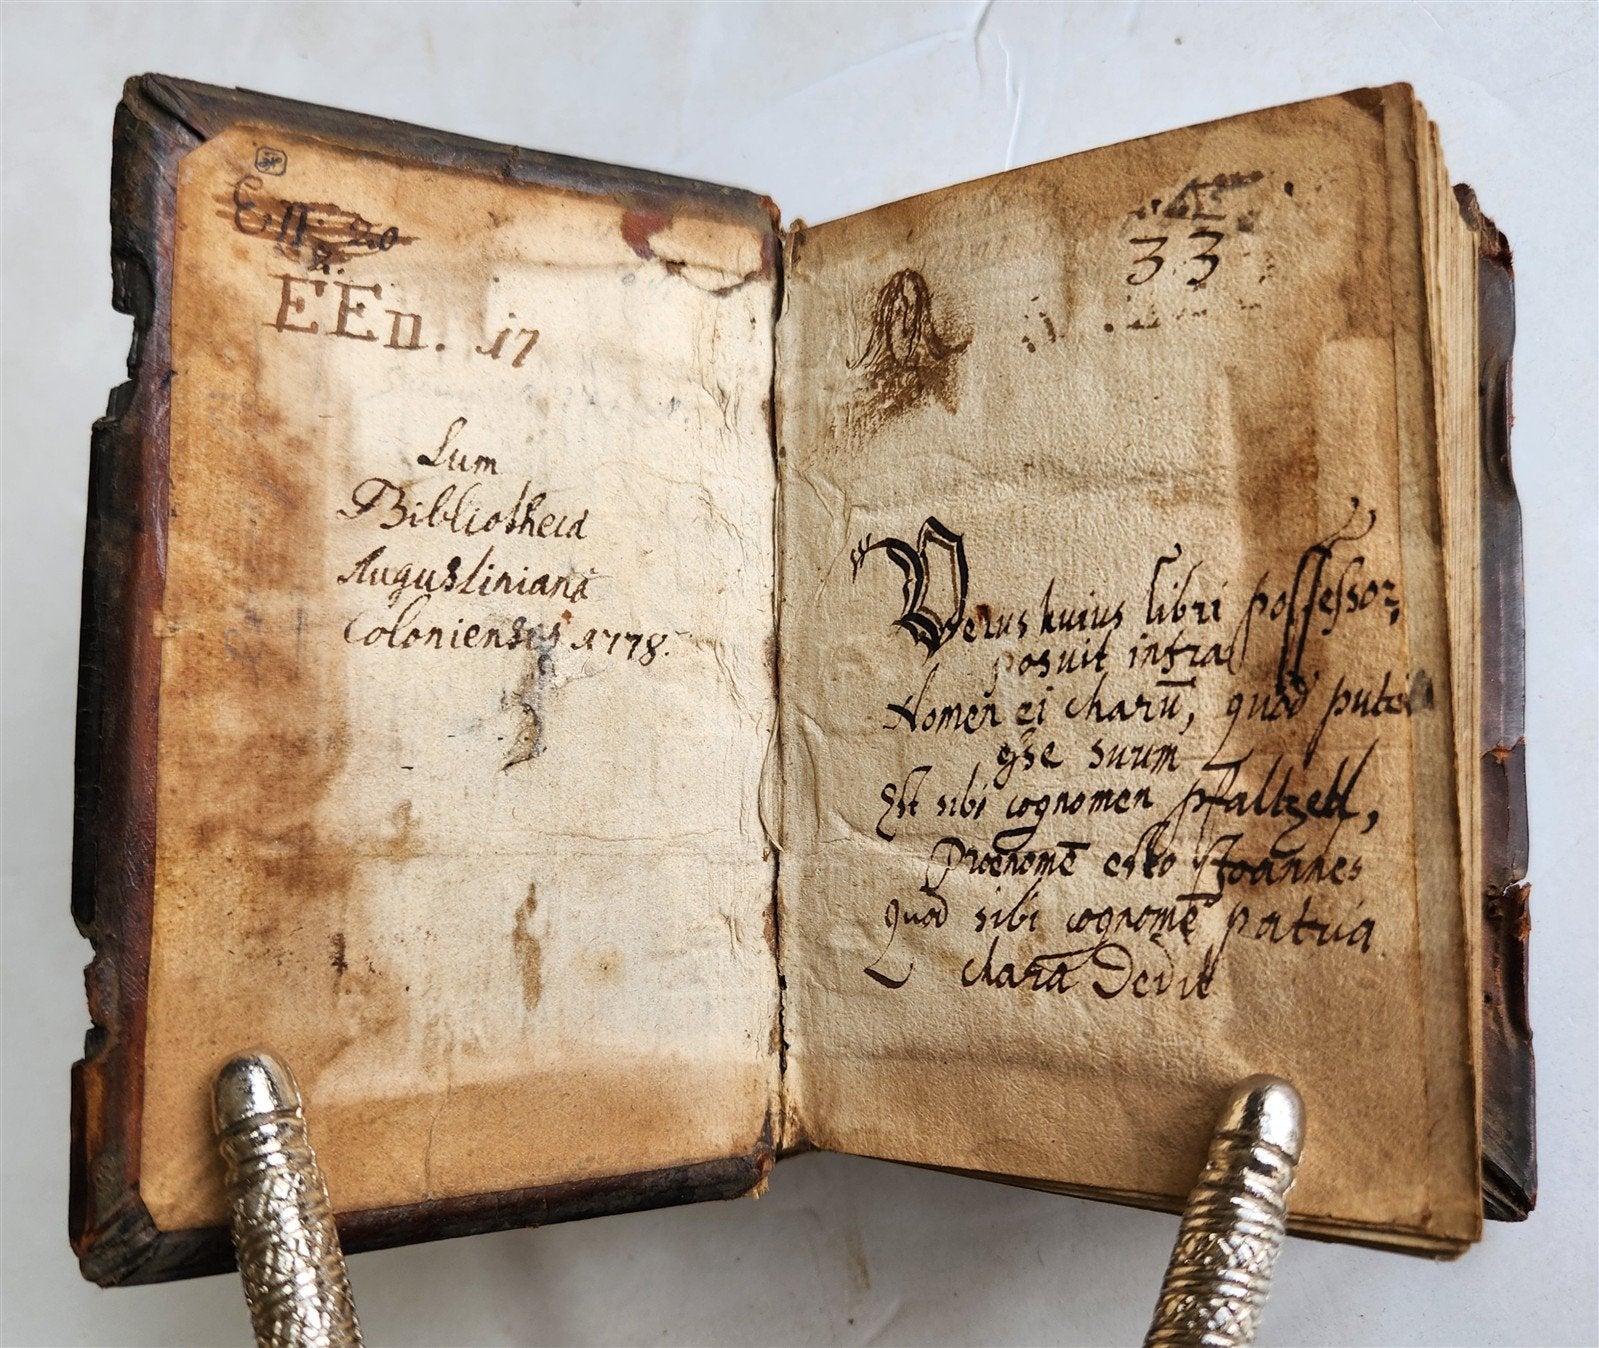 EEn. 17
Sum
Bibliotheca
Augustiniana
Coloniensis 1778.
33
Verus huius libri possessor,
posuit infra
Nomen ei charū, quod putat
esse suum
Est sibi cognomen Pfaltzell,
Proenomē esto Joannes
Quod sibi cognomē patria
chara Dedit